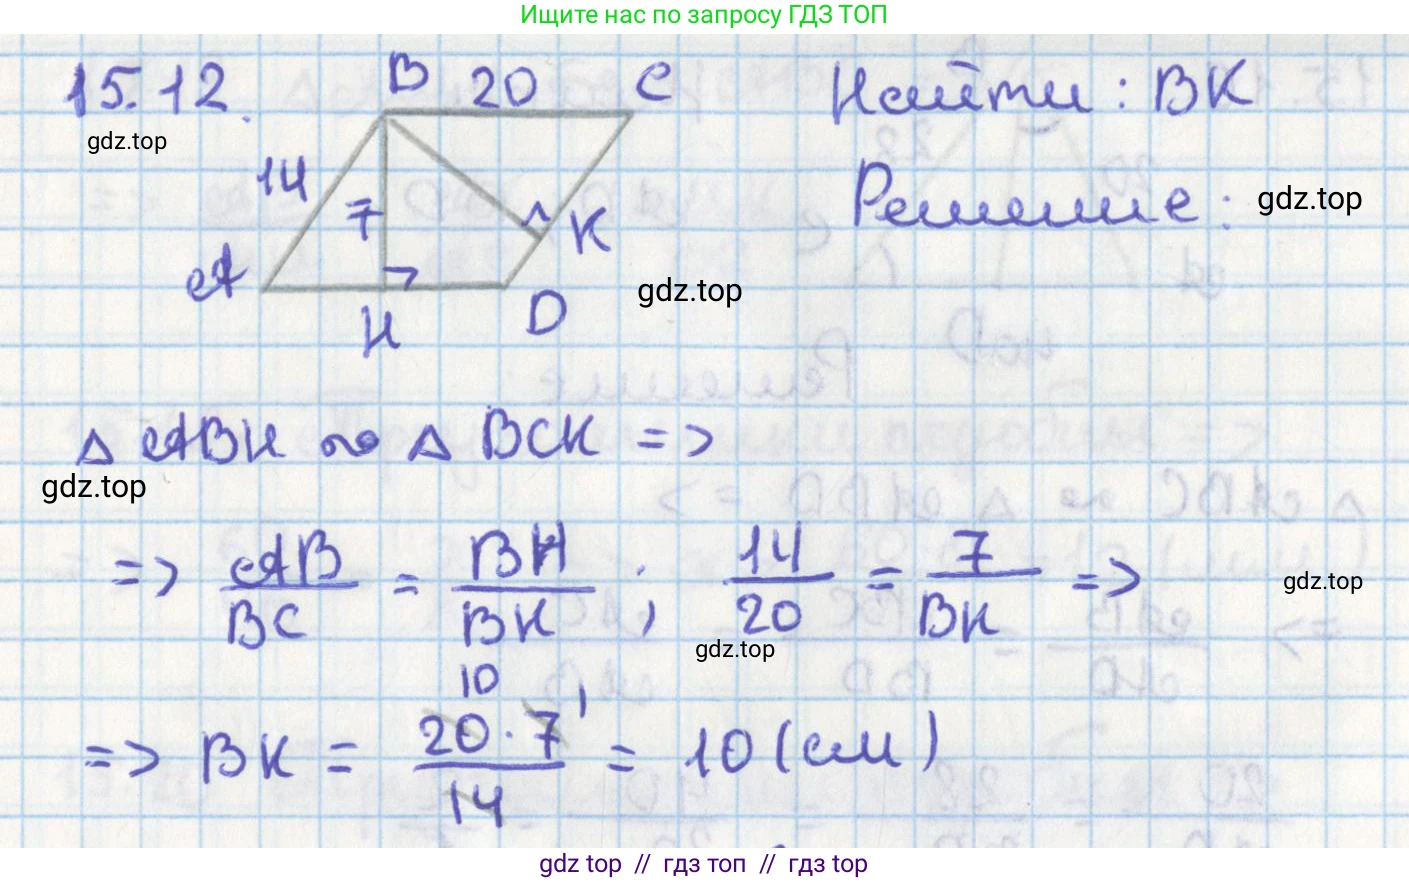 Ищите нас по запросу ГДЗ ТОП
15.12.
gdz.top
B 20 C
14
7
A
K
H
D
Найти : BK
Решение :
gdz.top
gdz.top
△ ABH ∾ △ BCK =>
gdz.top
=> AB/BC = BH/BK ; 14/20 = 7/BK =>
gdz.top
gdz.top
10 1
=> BK = 20 · 7/14 = 10 (см)
gdz top // гдз топ // гдз top